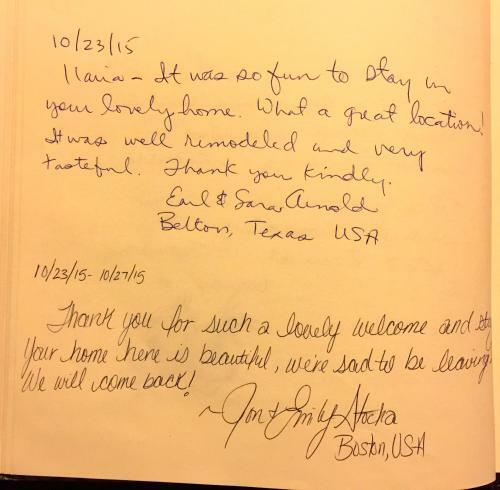 10/23/15
Ilaria - It was so fun to stay in
your lovely home. What a great location!
It was well remodeled and very
tasteful. Thank you kindly.
Earl & Sara Arnold
Belton, Texas USA
10/23/15 - 10/27/15
Thank you for such a lovely welcome and stay
Your home here is beautiful, we're sad to be leaving
We will come back!
~Jon & Emily
Boston, USA